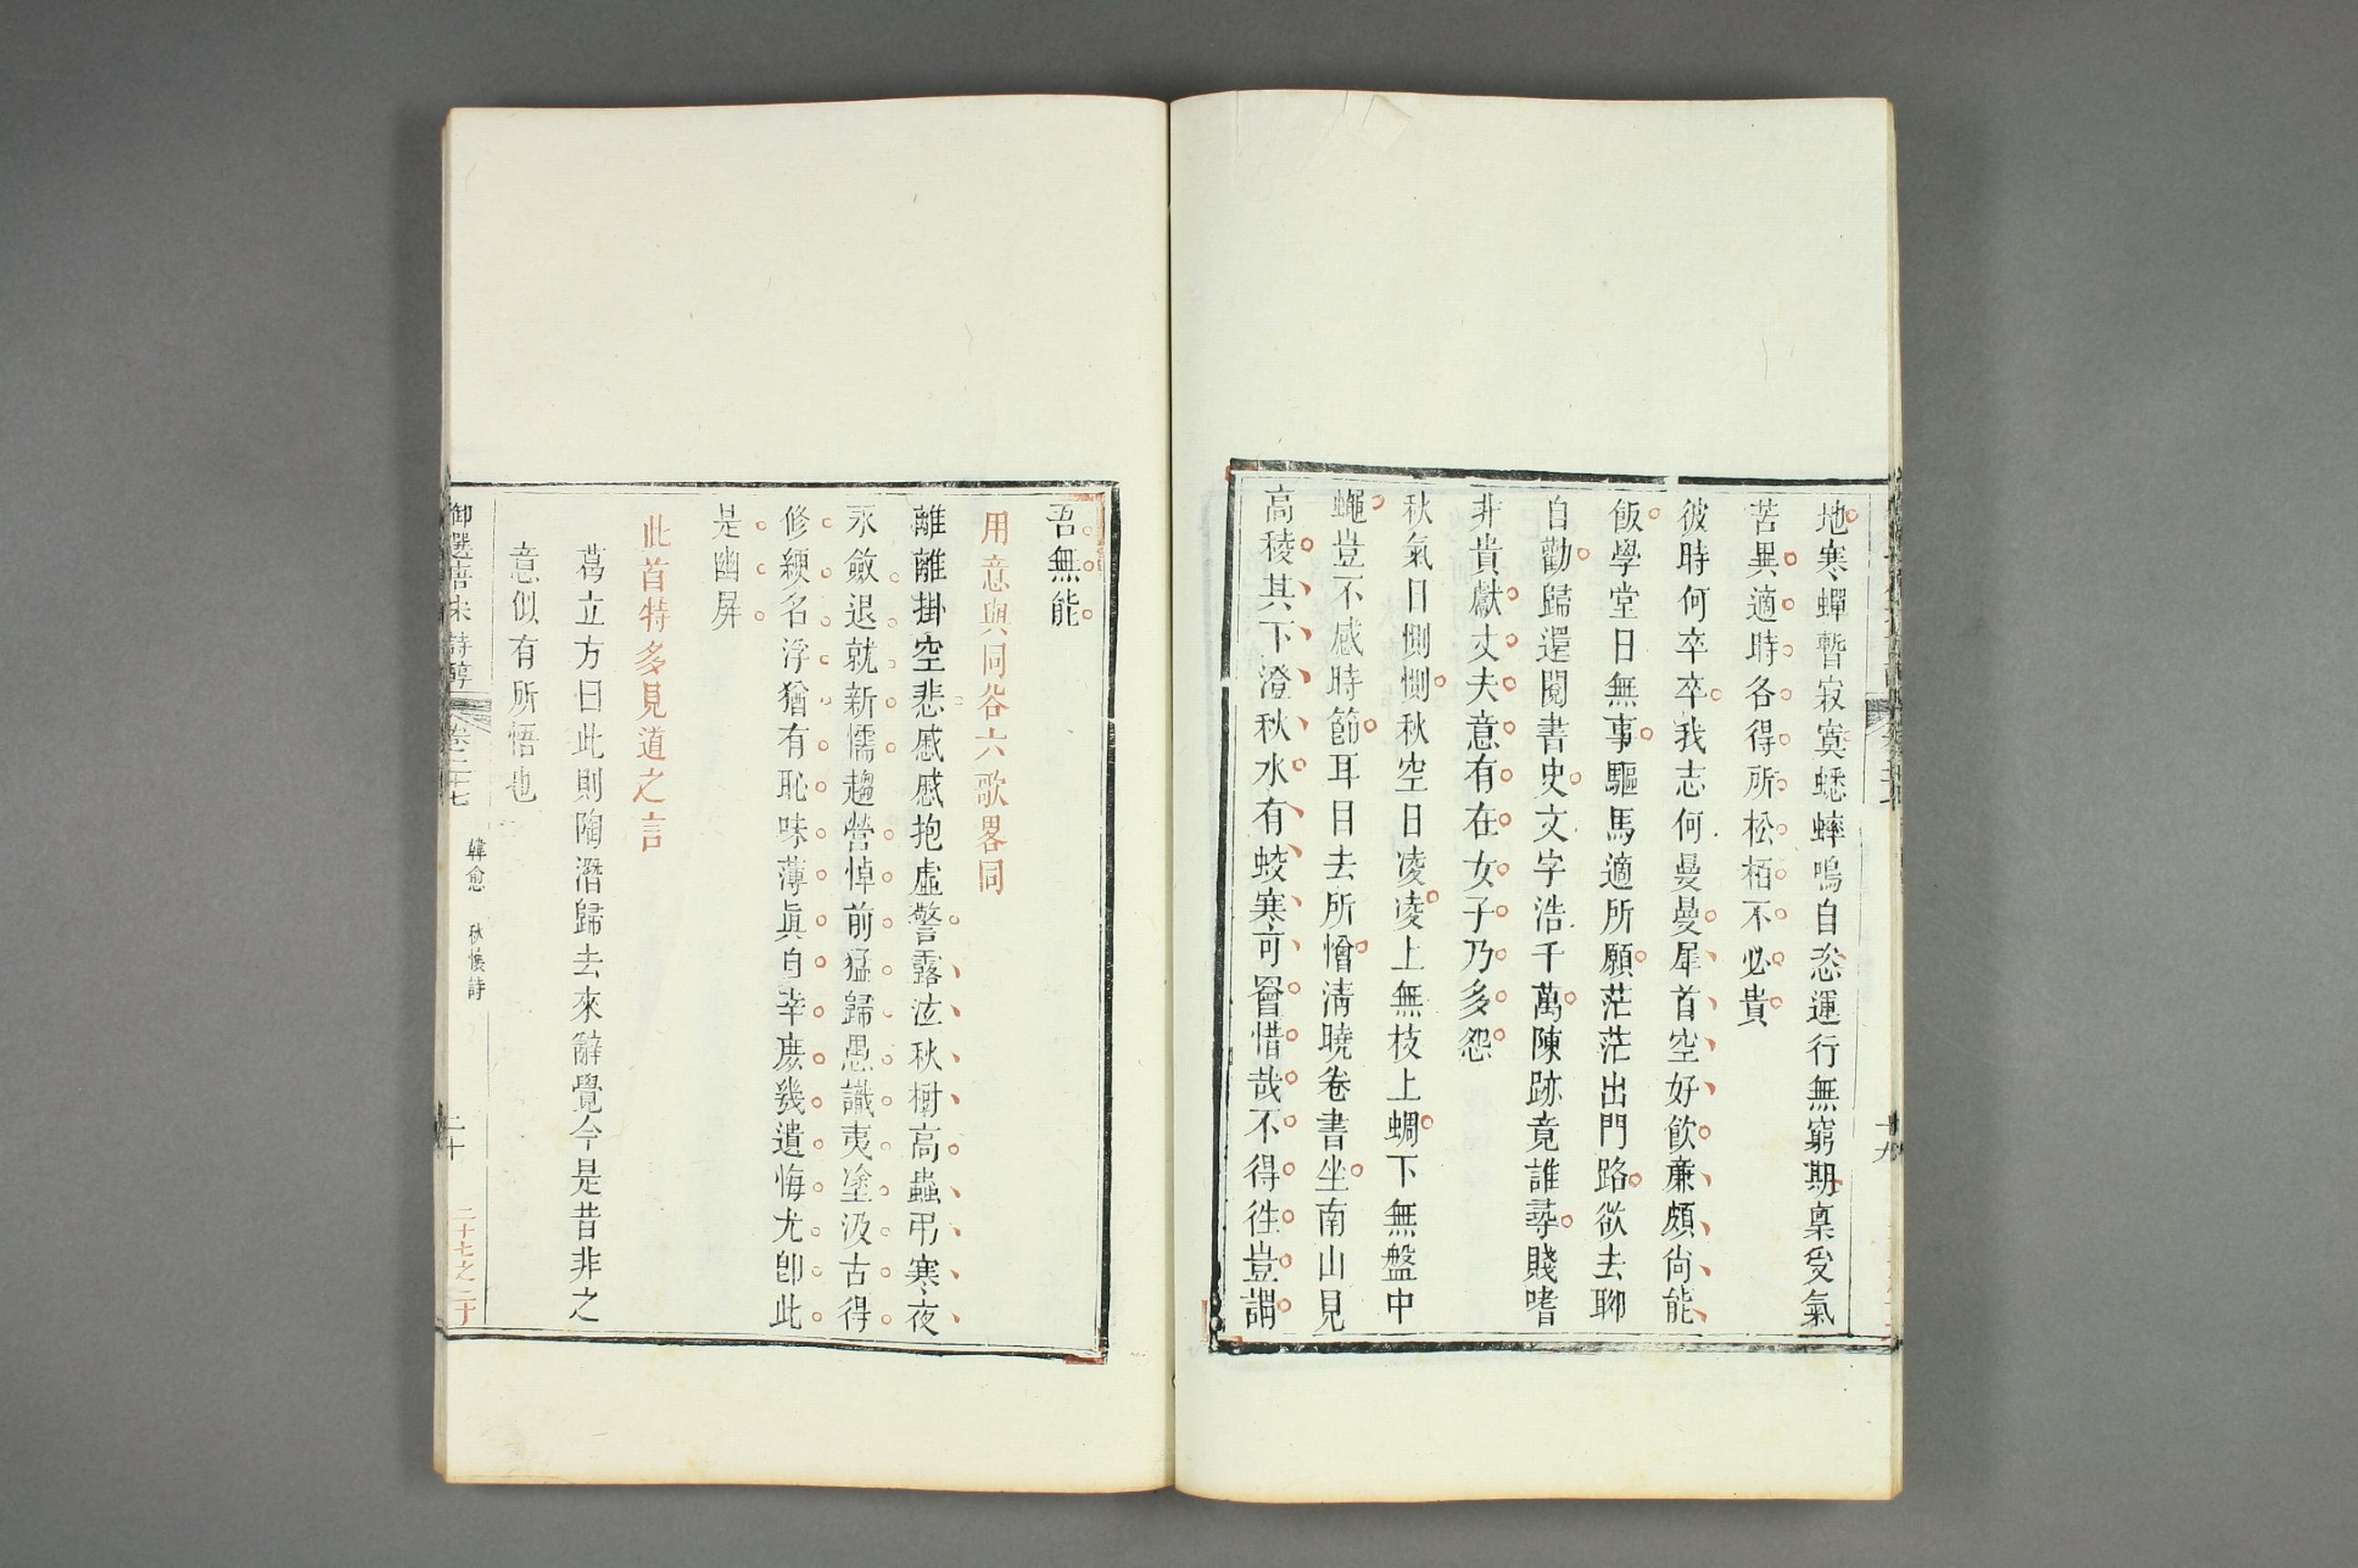 地寒蟬暫寂寞蟋蟀鳴自恣運行無窮期稟受氣
苦異適時各得所松栢不必貴
彼時何卒卒我志何曼曼犀首空好飲廉頗尚能
飯學堂日無事驅馬適所願茫茫出門路欲去聊
自勸歸還閱書史文字浩千萬陳跡竟誰尋賤嗜
非貴獻丈夫意有在女子乃多怨
秋氣日惻惻秋空日凌凌上無枝上蜩下無盤中
蠅豈不感時節耳目去所憎淸曉卷書坐南山見
高稜其下澄秋水有蛟寒可罾惜哉不得往豈謂
吾無能
用意與同谷六歌畧同
離離掛空悲慼慼抱虛警露泫秋樹高蟲弔寒夜
永斂退就新懦趨營悼前猛歸愚識夷塗汲古得
修綆名浮猶有恥味薄眞自幸庶幾遺悔尤卽此
是幽屏
此首特多見道之言
葛立方曰此則陶潛歸去來辭覺今是昔非之
意似有所悟也
御選唐宋詩醇 卷二十七 韓愈 秋懷詩 二十 二十七之二十